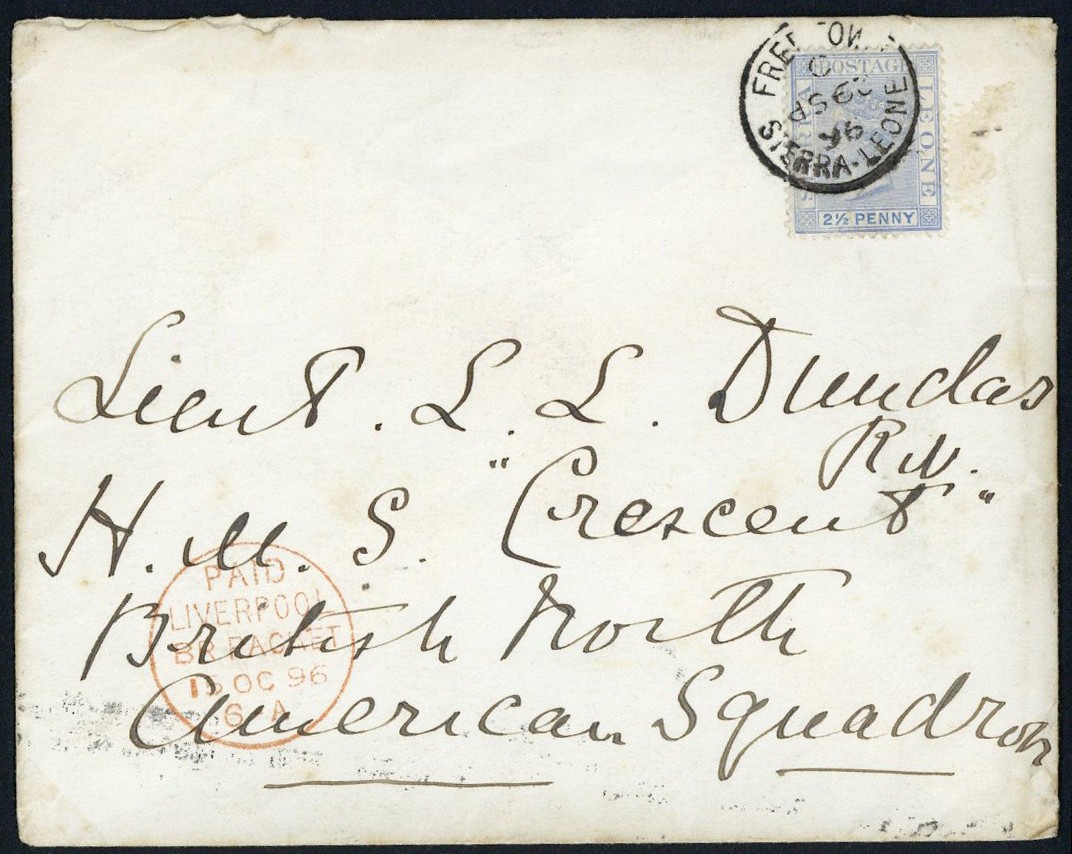 FREETOWN
SP
96
SIERRA-LEONE
POSTAGE
LEONE
2½ PENNY
Lieut. L. L. Dundas
R.N.
H.M.S. "Crescent"
British North
American Squadron
PAID
LIVERPOOL
BR PACKET
15 OC 96
6 A